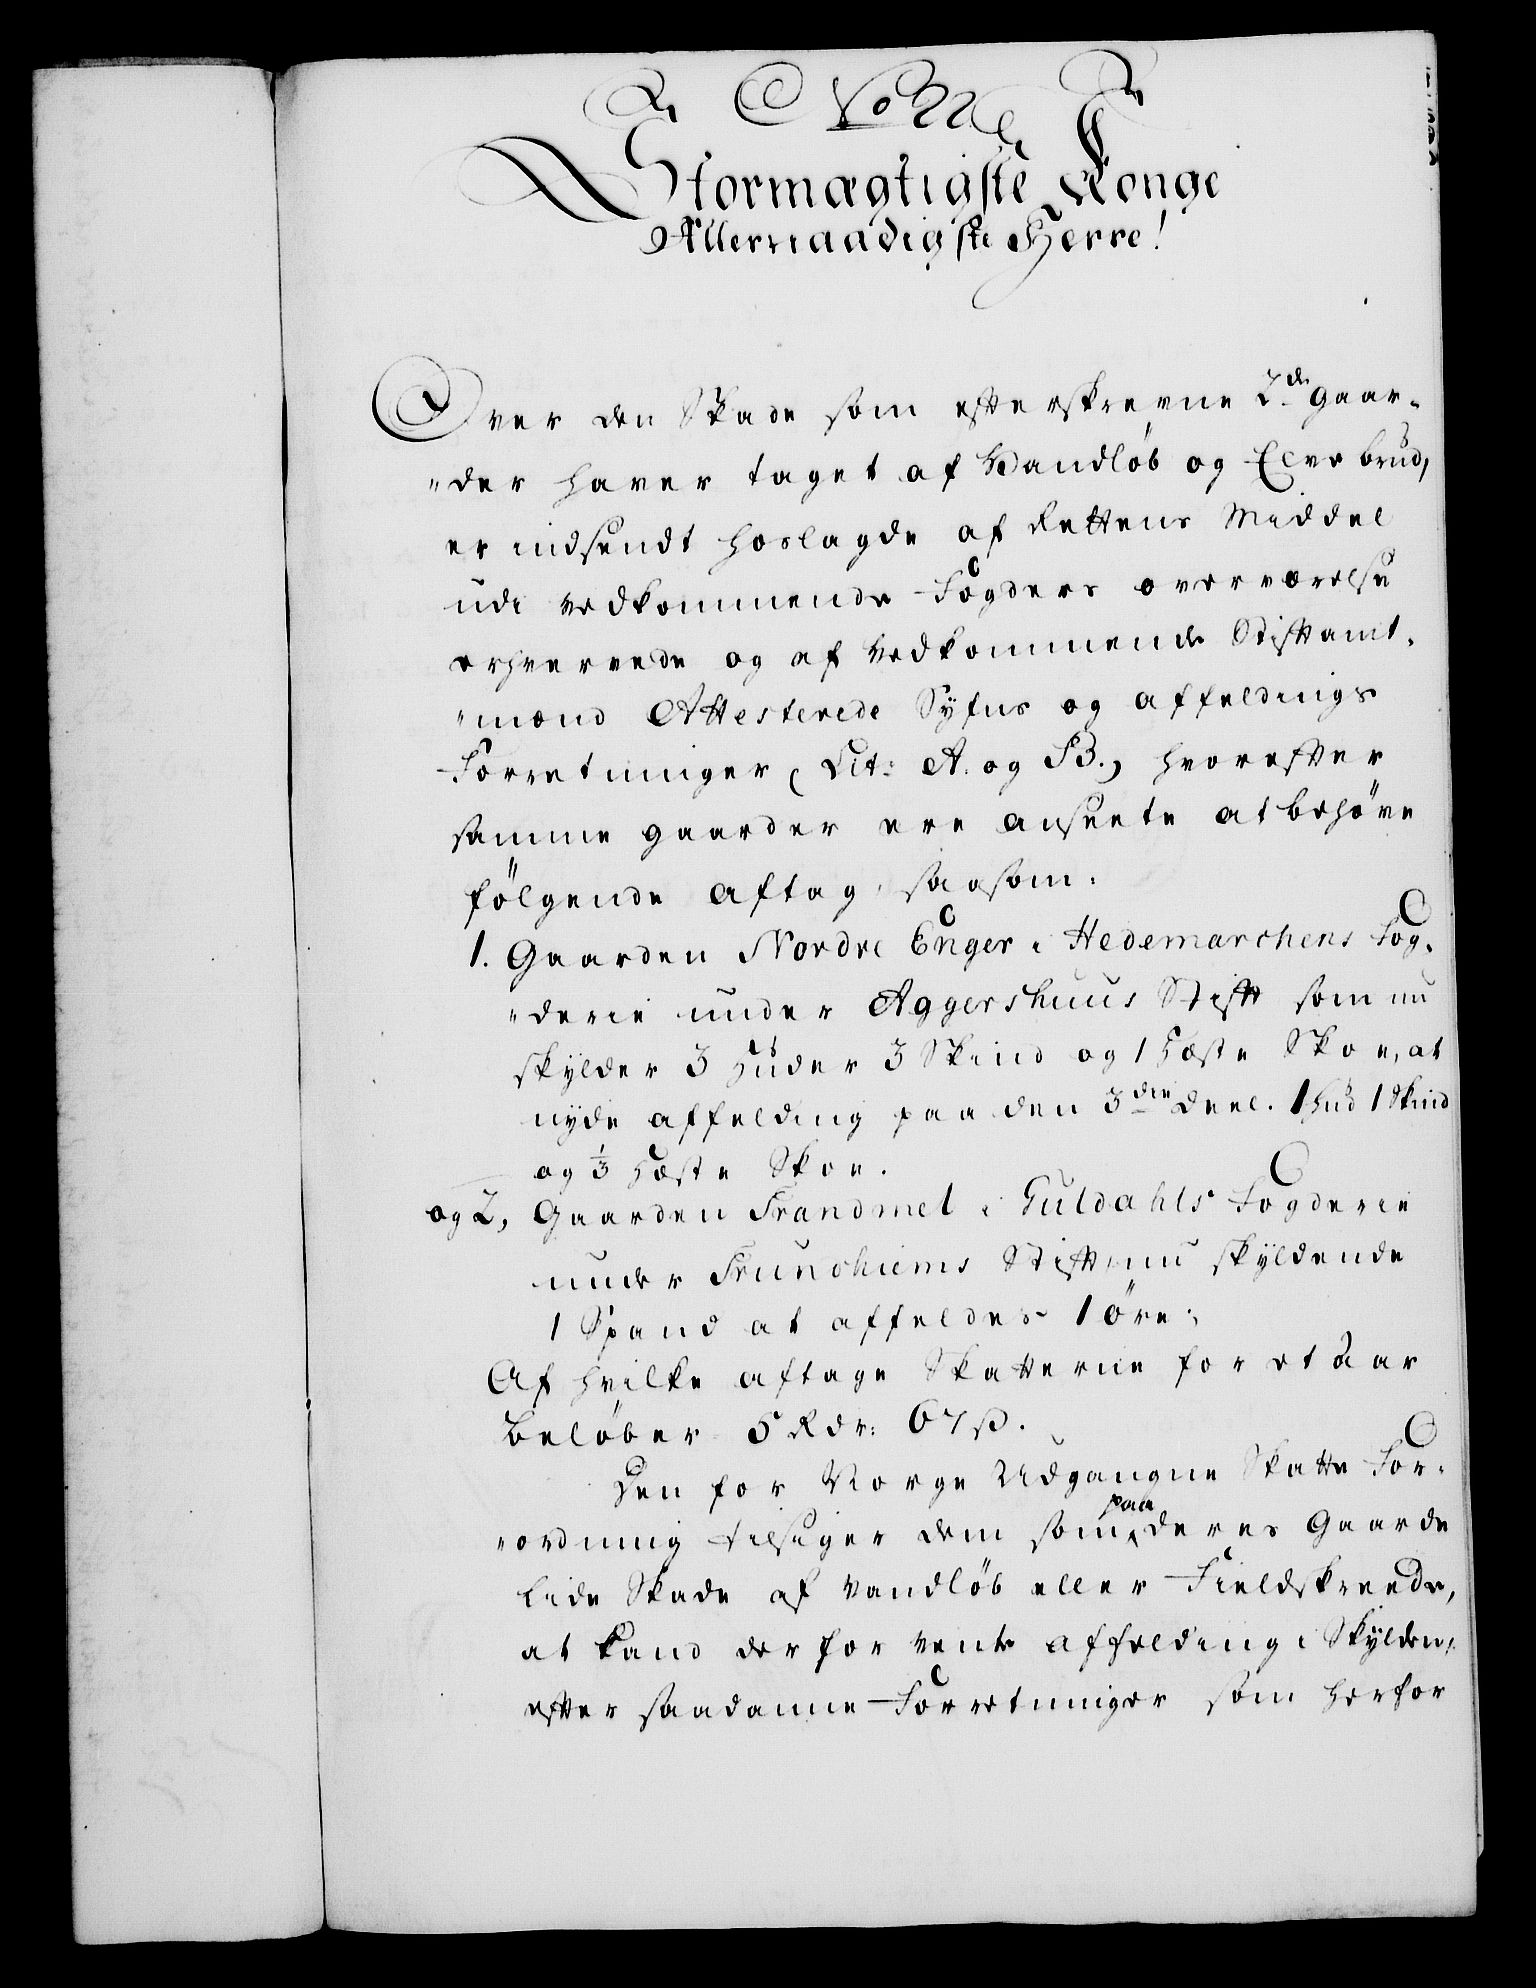 No 22
Stormægtigste Konge
Allernaadigste Herre!
Over den Skade som efterskrevne 2de Gaar-
"der haver taget af Vandløb og Elvebrud,
er indsendt hoslagde af Rettens Middel
udi vedkommende Fogders overværelse
erhvervede og af vedkommende Stiftamt-
"mænd Attesterede Syfns og affeldings
Forretninger (Lit: A. og B.) hvorefter
samme gaarder ere ansente at behøve
følgende aftag, saasom:
1. Gaarden Nordre Enger i Hedemarchens Fog-
"derie under Aggershuus Stift som nu
skylder 3 Huder 3 Skind og 1 Hæste Skoe, at
nyde affelding paa den 3die Deel. 1 hud 1 Skind
og 1/3 Hæste Skoe.
og 2, Gaarden Trandmel i Guldahls Fogderie
under Trundhiems Stift, nu skyldende
1 Spand at affeldes 1 Øre;
Af hvilke aftage Skatterne for et Aar
beløber 5 Rdr: 67 ß.
Den for Norge Udgangne Skatte For-
"ordning tilsiger dem som paa deres Gaarde
lide Skade af Vandløb eller Fieldskreede,
at kand derfor vente affelding i Skylden,
efter saadanne Forretninger som herfor